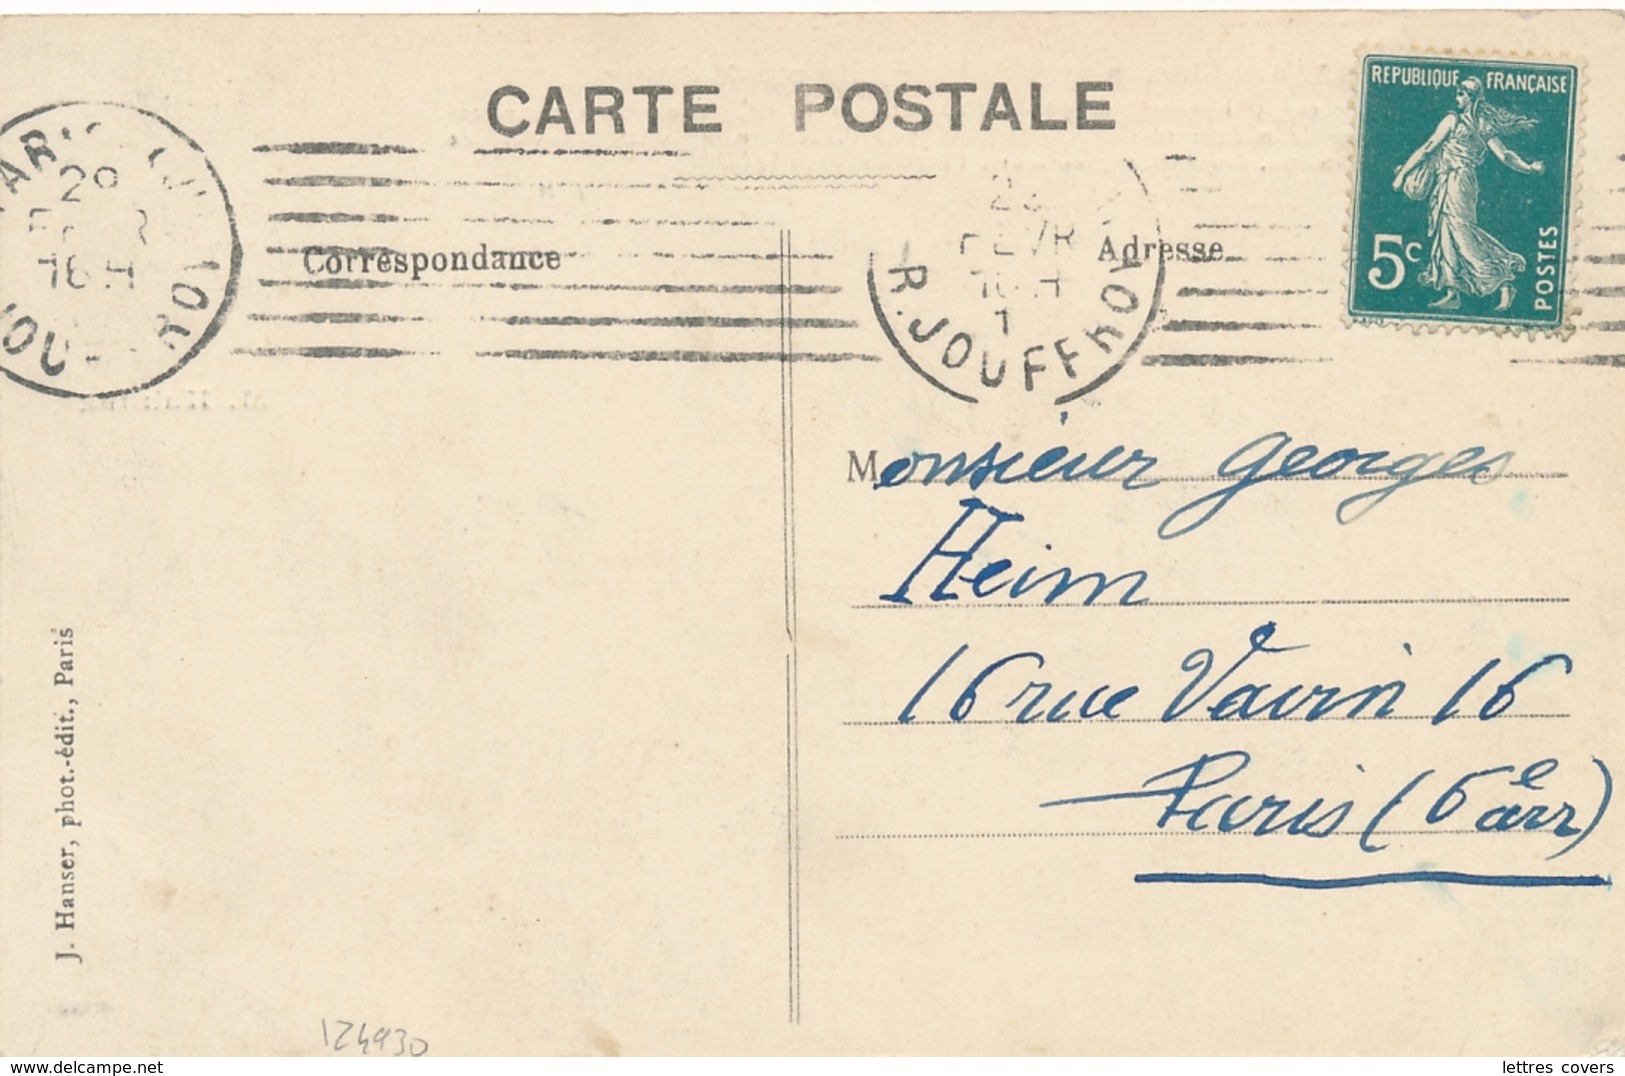 CARTE POSTALE
REPUBLIQUE FRANÇAISE
5c
POSTES
29
16 H
FEVR
R. JOUFFROY
Correspondance
Adresse
Monsieur Georges
Heim
16 rue Vavin 16
Paris (6e arr)
J. Hanser, phot.-édit., Paris
124930
lettres covers